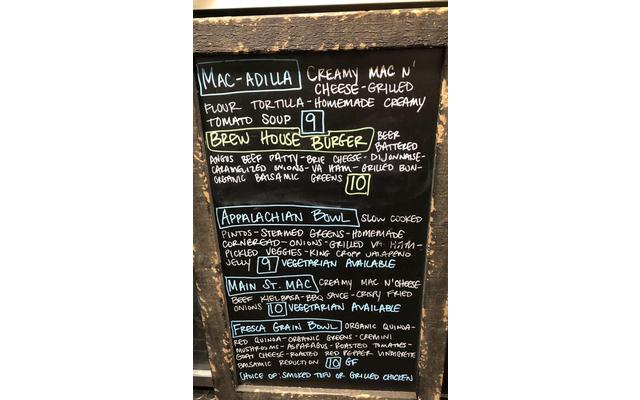 MAC-ADILLA CREAMY MAC N'
CHEESE-GRILLED
FLOUR TORTILLA-HOMEMADE CREAMY
TOMATO SOUP 9
BREW HOUSE BURGER BEER
BATTERED
ANGUS BEEF PATTY-BRIE CHEESE-DIJONNAISE-
CARAMELIZED ONIONS-VA HAM-GRILLED BUN-
ORGANIC BALSAMIC GREENS 10
APPALACHIAN BOWL SLOW COOKED
PINTOS-STEAMED GREENS-HOMEMADE
CORNBREAD-ONIONS-GRILLED VA HAM-
PICKLED VEGGIES-KING CROPP JALAPENO
JELLY 9 VEGETARIAN AVAILABLE
MAIN ST. MAC CREAMY MAC N'CHEESE
BEEF KIELBASA-BBQ SAUCE-CRISPY FRIED
ONIONS 10 VEGETARIAN AVAILABLE
FRESCA GRAIN BOWL ORGANIC QUINOA-
RED QUINOA-ORGANIC GREENS-CREMINI
MUSHROOMS-ASPARAGUS-ROASTED TOMATOES-
GOAT CHEESE-ROASTED RED PEPPER VINAIGRETTE
BALSAMIC REDUCTION 10 GF
CHOICE OF: SMOKED TOFU OR GRILLED CHICKEN